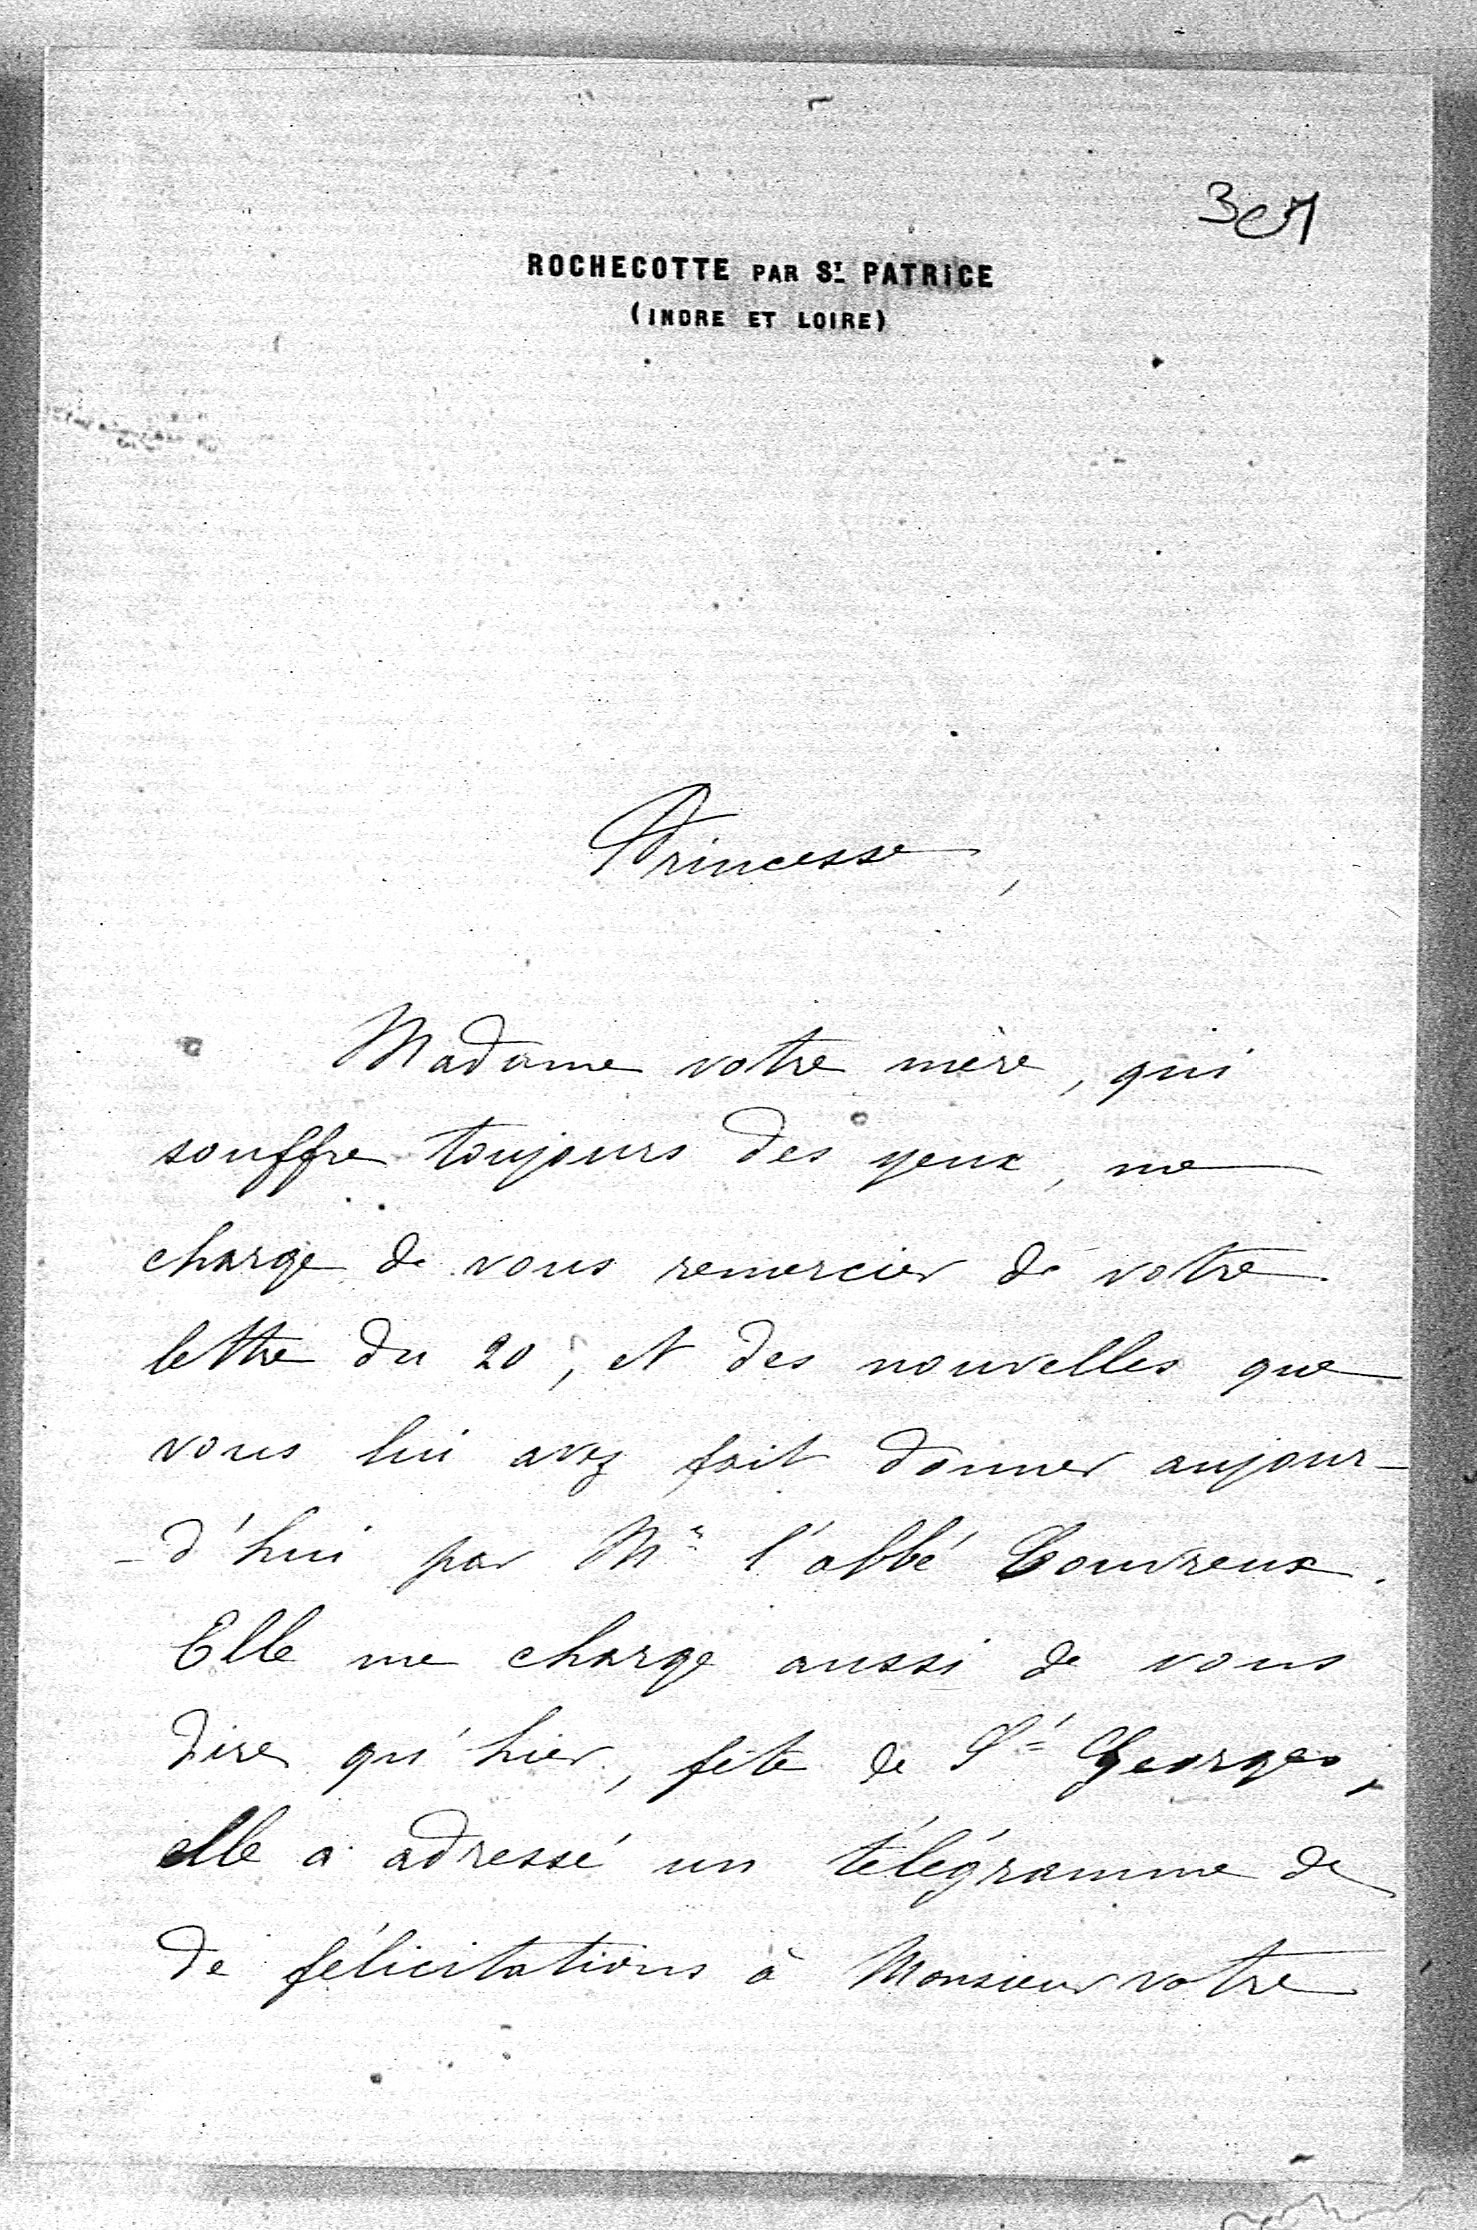 ROCHECOTTE PAR ST PATRICE
(INDRE ET LOIRE)
Princesse,
Madame votre mère, qui
souffre toujours des yeux, me
charge de vous remercier de votre
lettre du 20, et des nouvelles que
vous lui avez fait donner aujour-
-d'hui par Mr l'abbé Couvreux.
Elle me charge aussi de vous
dire qu'hier, fête de St Georges,
elle a adressé un télégramme de
de félicitations à Monsieur votre